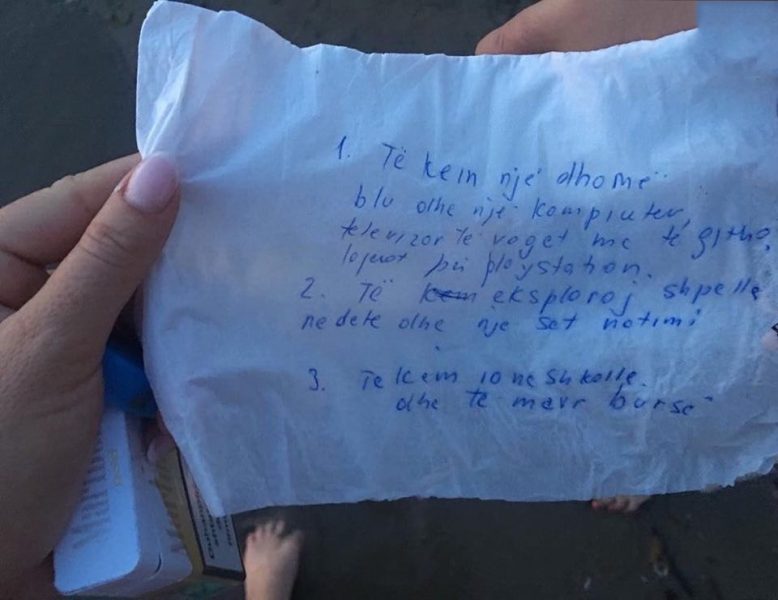 1. Të kem një dhomë
blu dhe një kompiuter,
televizor të voget me të gjitha
lojerat për playstation.
2. Të kem eksploroj shpella
ne dete dhe nje set notimi
3. Te kem 10 ne shkolle.
dhe te marr bursë